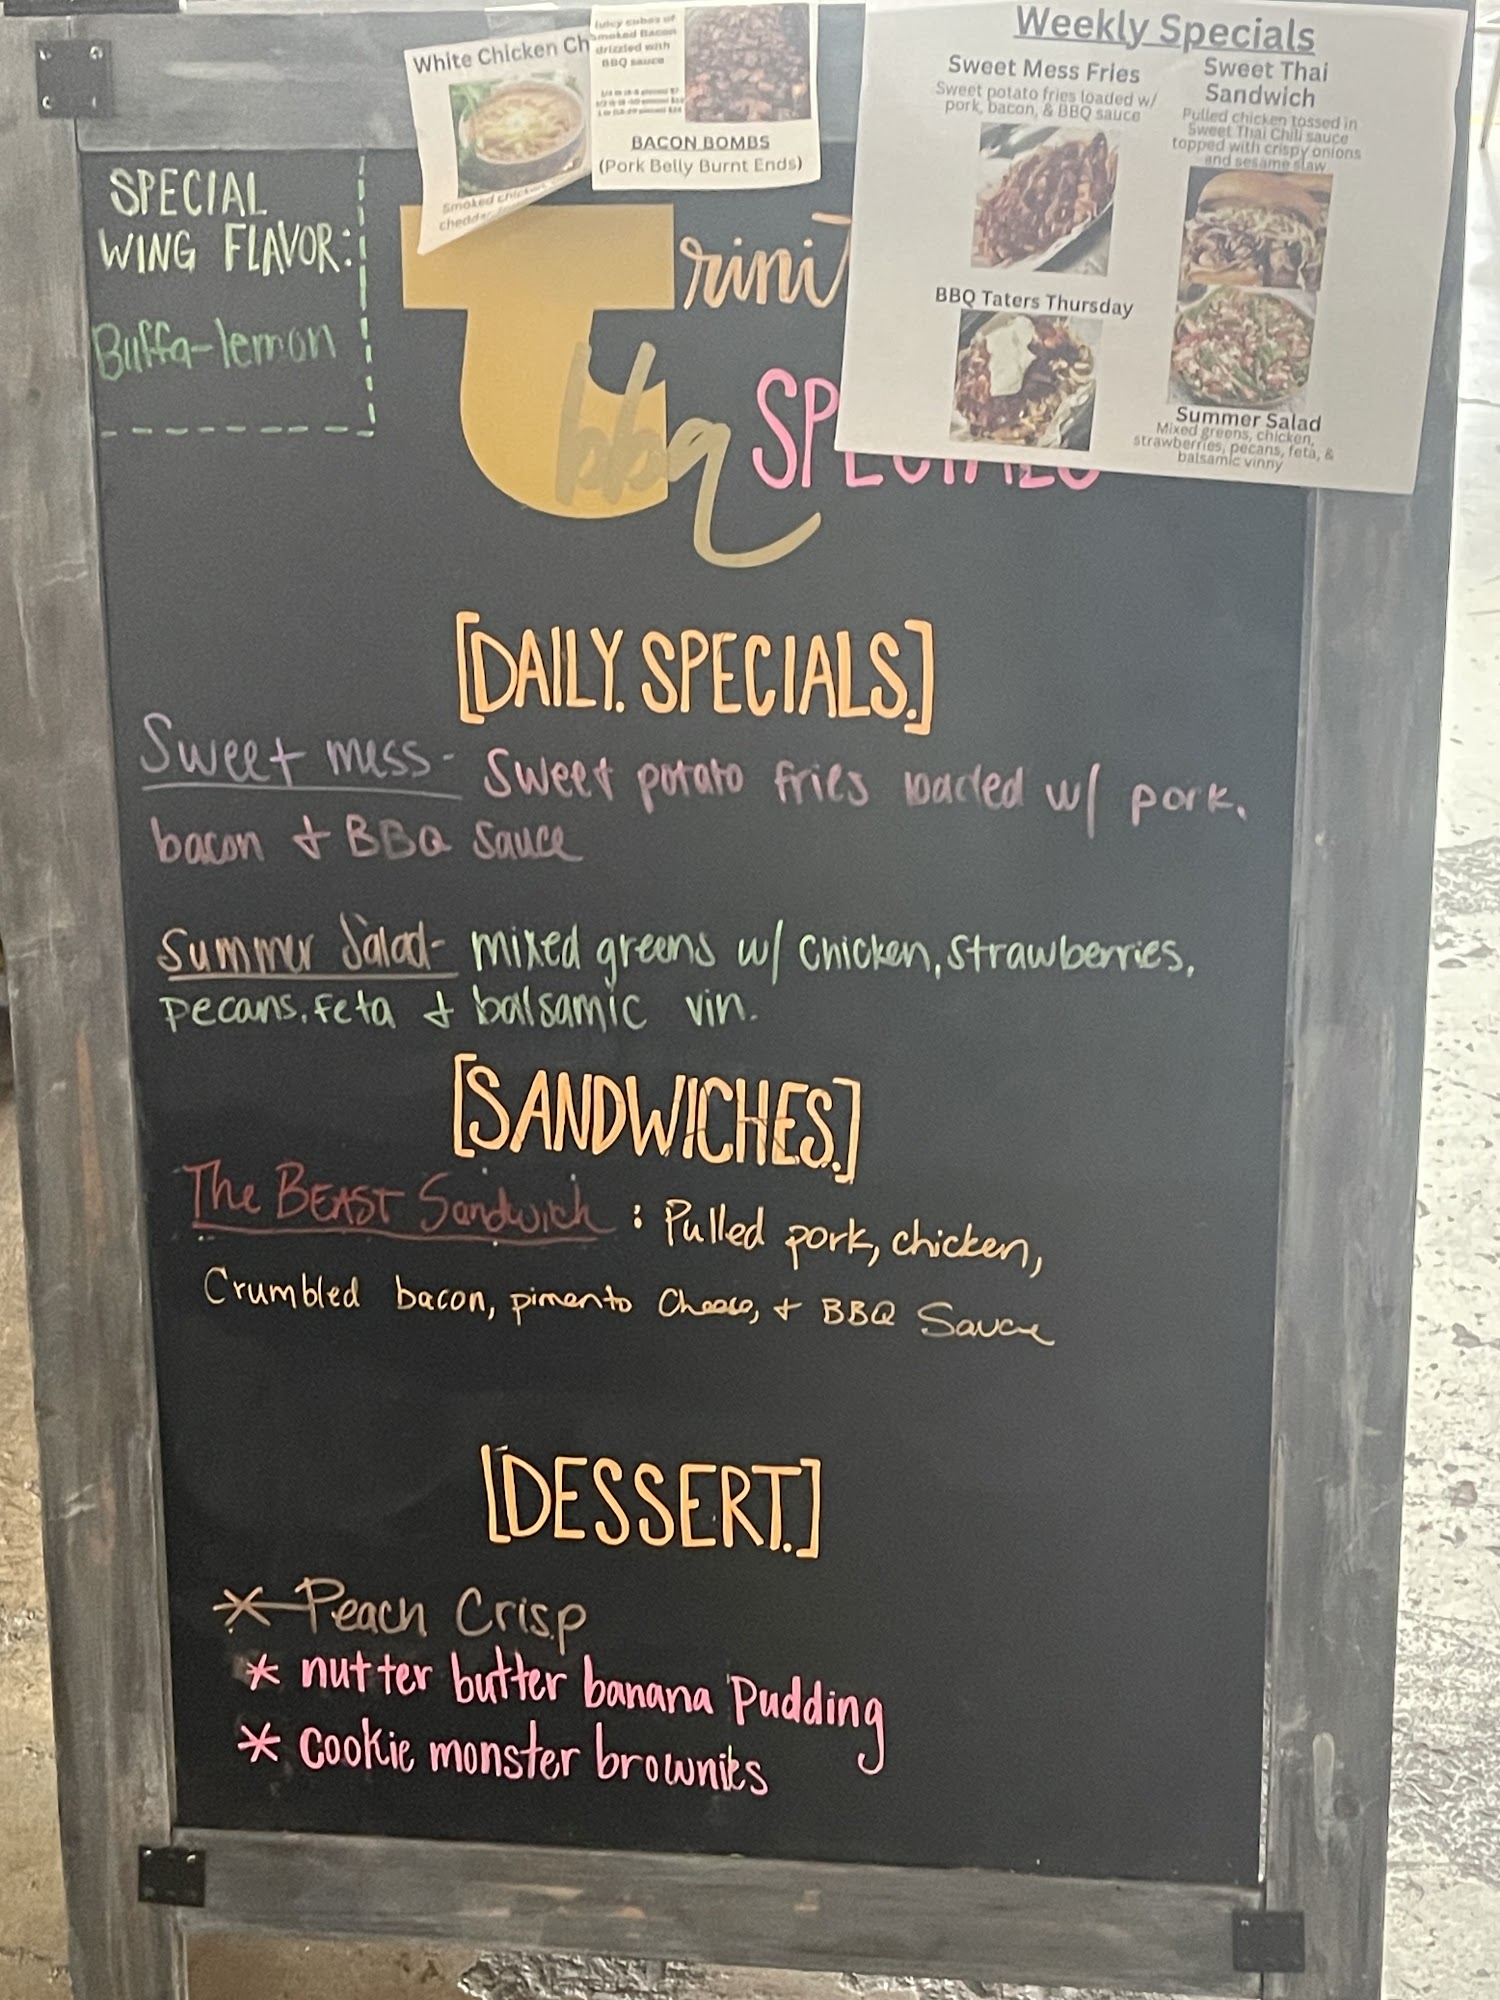 White Chicken Ch
Smoked
chedda
Juicy cubes of
Smoked Bacon
drizzled with
BBQ sauce
BACON BOMBS
(Pork Belly Burnt Ends)
Weekly Specials
Sweet Mess Fries
Sweet potato fries loaded w/
pork, bacon, & BBQ sauce
Sweet Thai
Sandwich
Pulled chicken tossed in
Sweet Thai Chili sauce
topped with crispy onions
and sesame slaw
BBQ Taters Thursday
Summer Salad
Mixed greens, chicken,
strawberries, pecans, feta, &
balsamic vinny
SPECIAL
WING FLAVOR:
Buffa-lemon
Trinit
bbq SPECIALS
[DAILY. SPECIALS.]
Sweet mess- Sweet potato fries loaded w/ pork,
bacon + BBQ Sauce
Summer Salad- mixed greens w/ chicken, strawberries,
pecans, feta + balsamic vin.
[SANDWICHES.]
The BEAST Sandwich : Pulled pork, chicken,
Crumbled bacon, pimento Cheese, + BBQ Sauce
[DESSERT.]
* Peach Crisp
* nutter butter banana Pudding
* cookie monster brownies